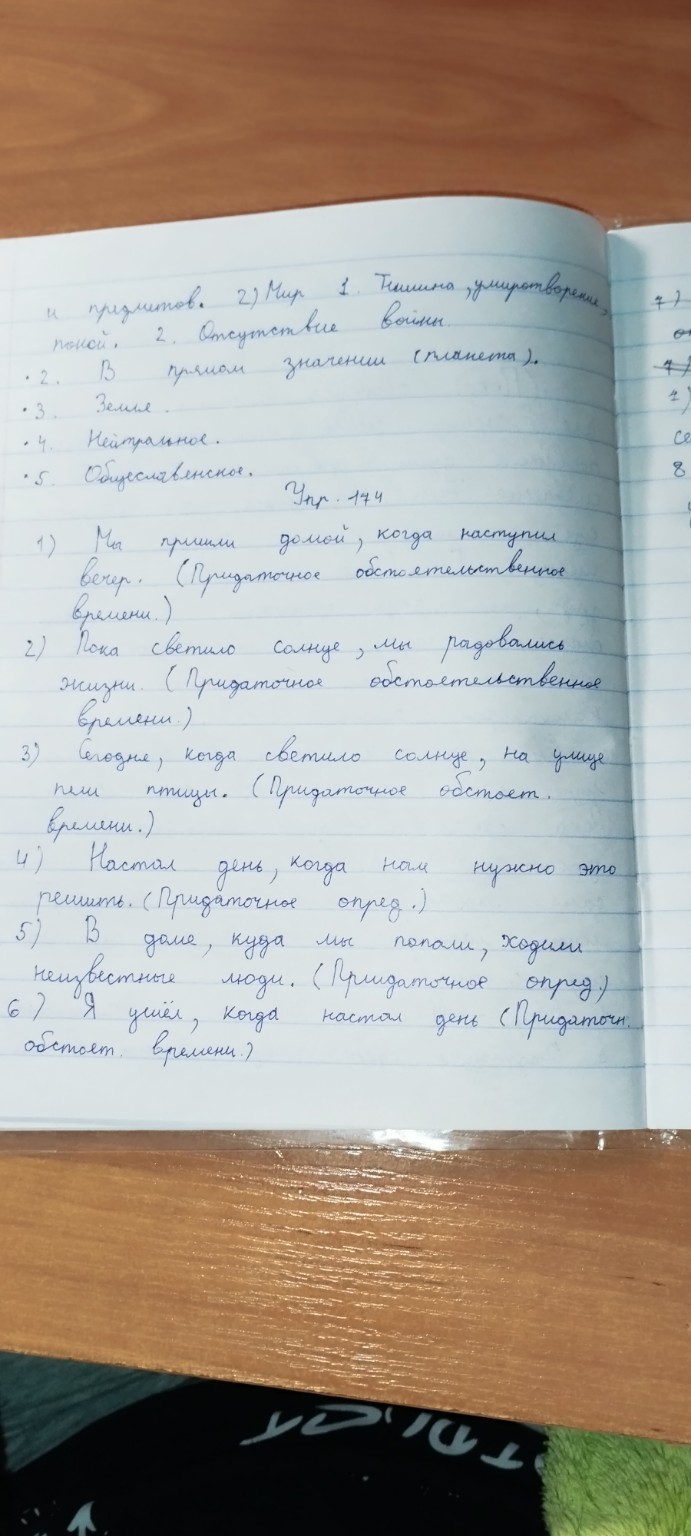 и предметов. 2) Мир 1. Тишина, умиротворение,
покой. 2. Отсутствие войны.
· 2. В прямом значении (планета).
· 3. Земля.
· 4. Нейтральное.
· 5. Общеславенское.
Упр. 174
1) Мы пришли домой, когда наступил
вечер. (Придаточное обстоятельственное
времени.)
2) Пока светило солнце, мы радовались
жизни. (Придаточное обстоятельственное
времени.)
3) Сегодня, когда светило солнце, на улице
пели птицы. (Придаточное обстоят.
времени.)
4) Настал день, когда нам нужно это
решить. (Придаточное опред.)
5) В доме, куда мы попали, ходили
неизвестные люди. (Придаточное опред.)
6) Я ушёл, когда настал день (Придаточн.
обстоят. времени.)
7)
1)
се
8